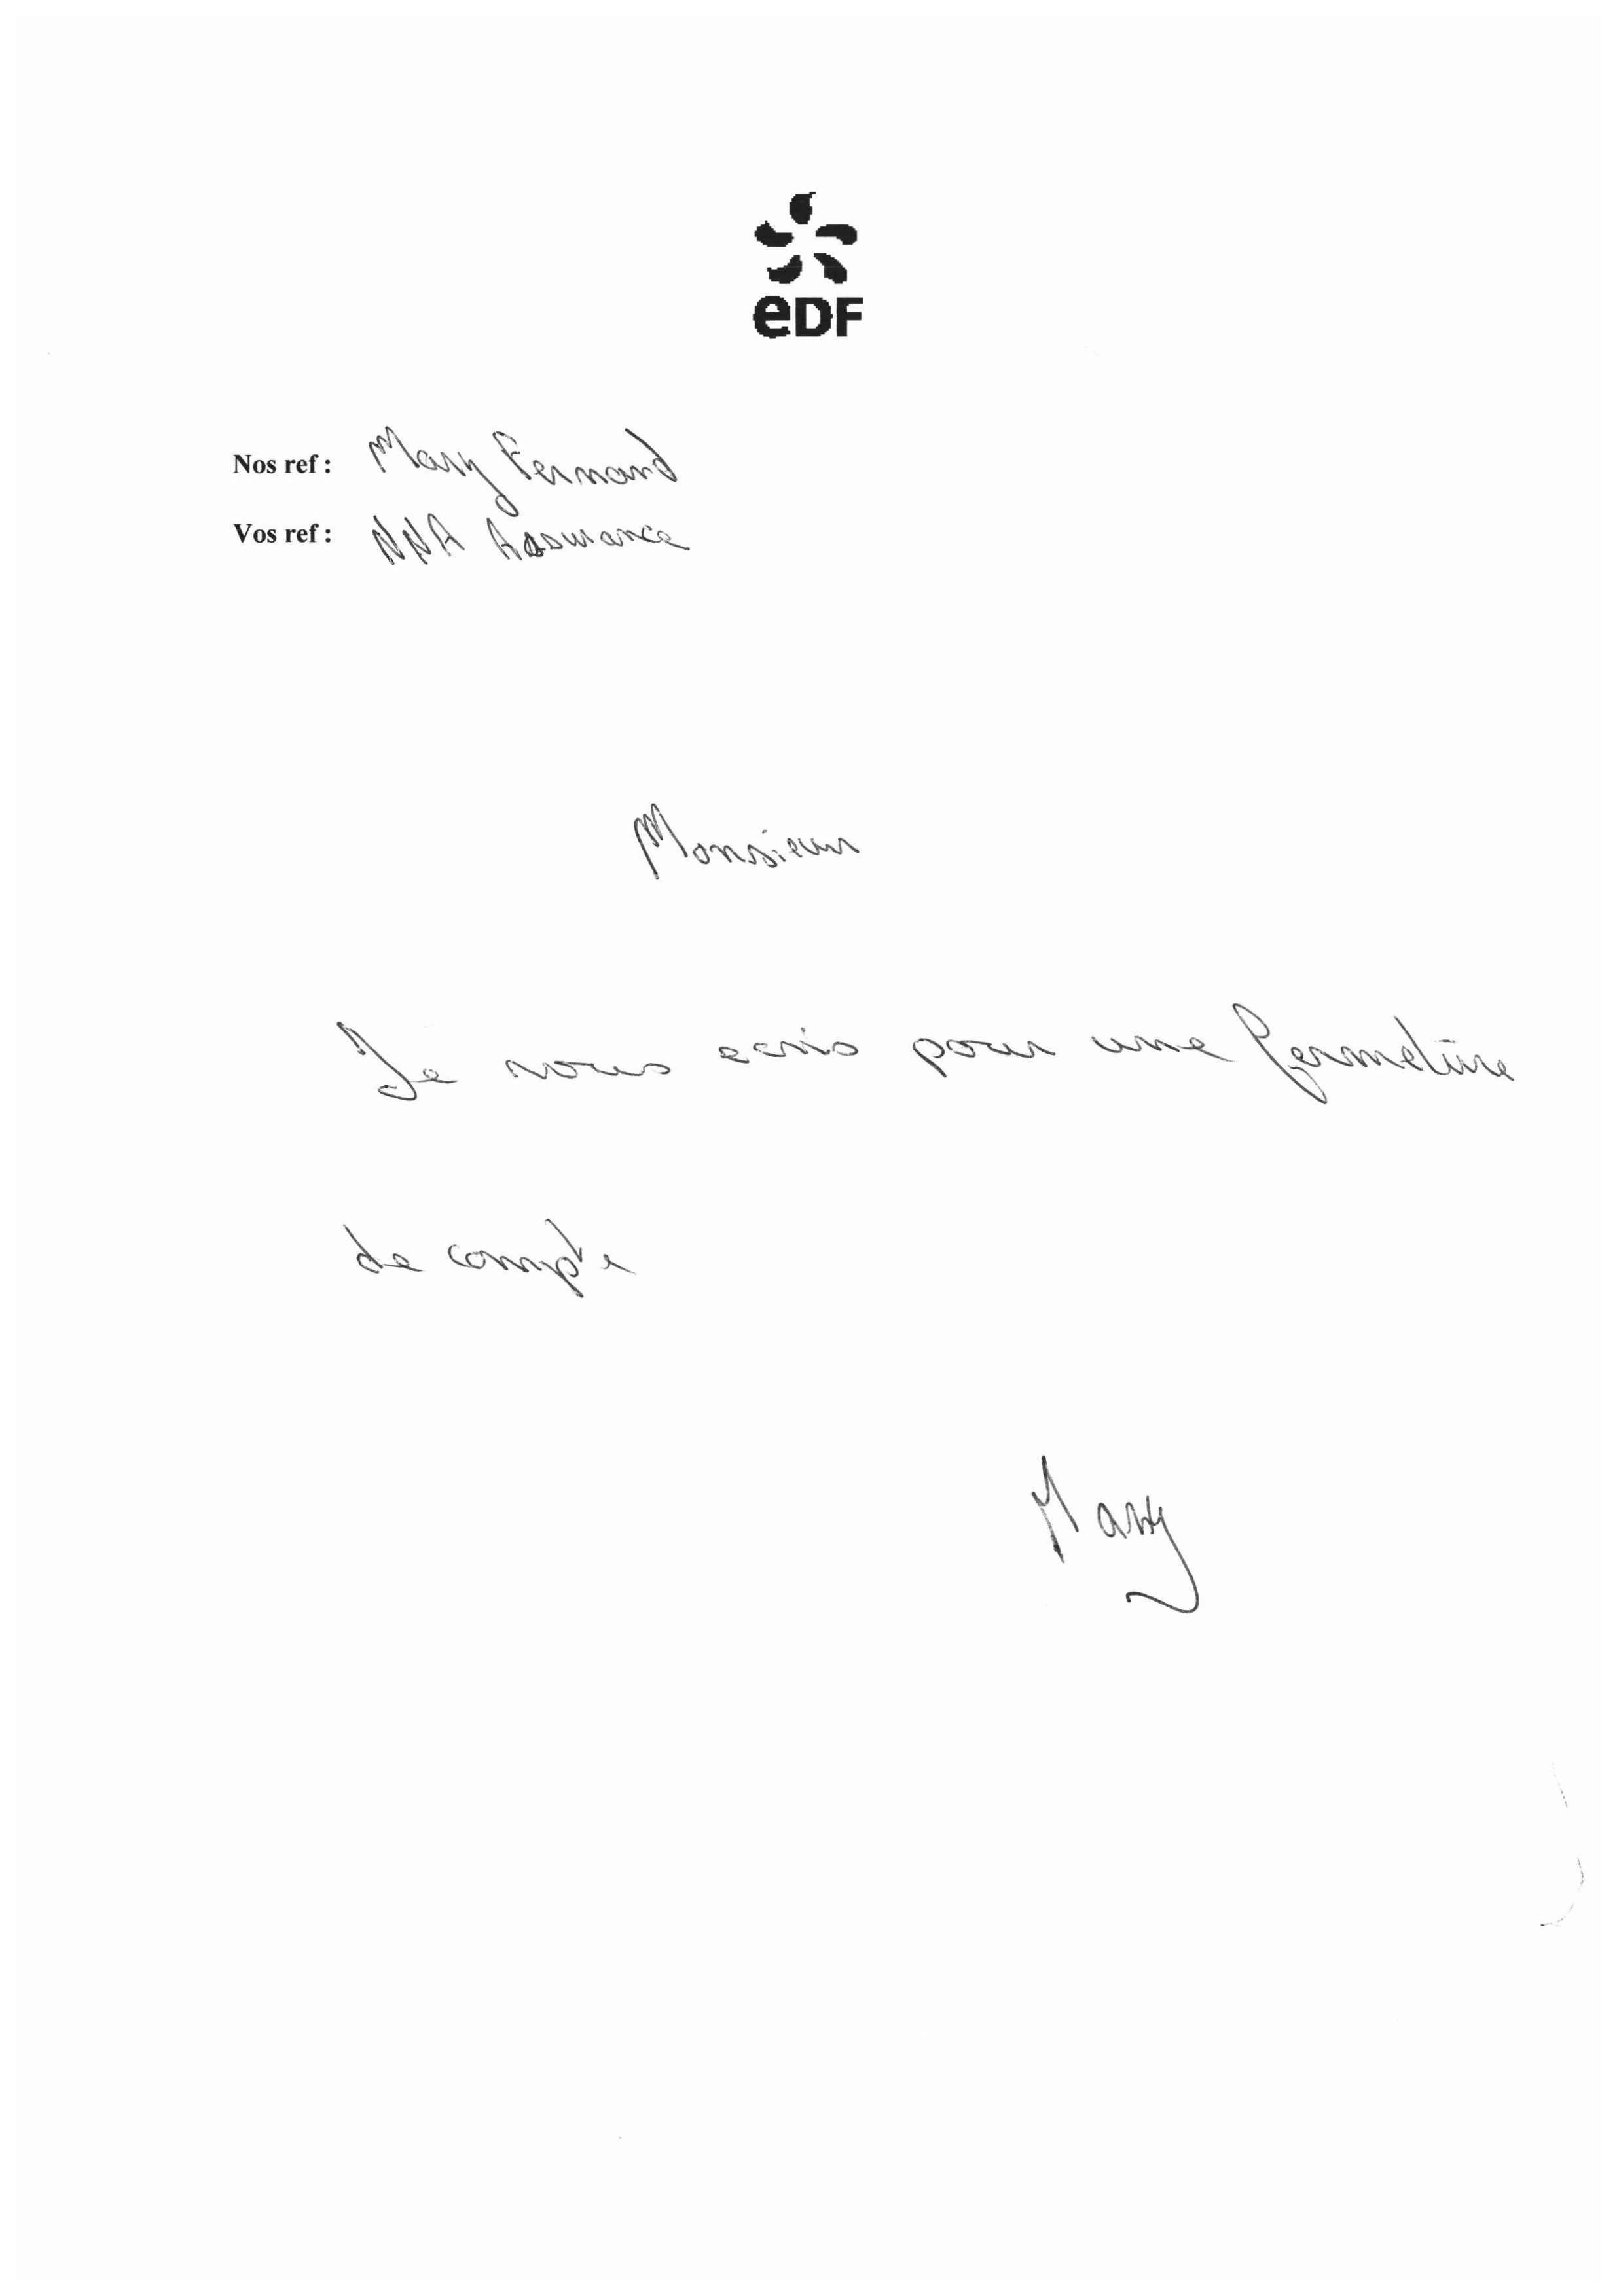 eDF
Nos ref : Mary Fernand
Vos ref : NNA Assurance
Monsieur
Je vous ecris pour une fermeture
de compte
Mary